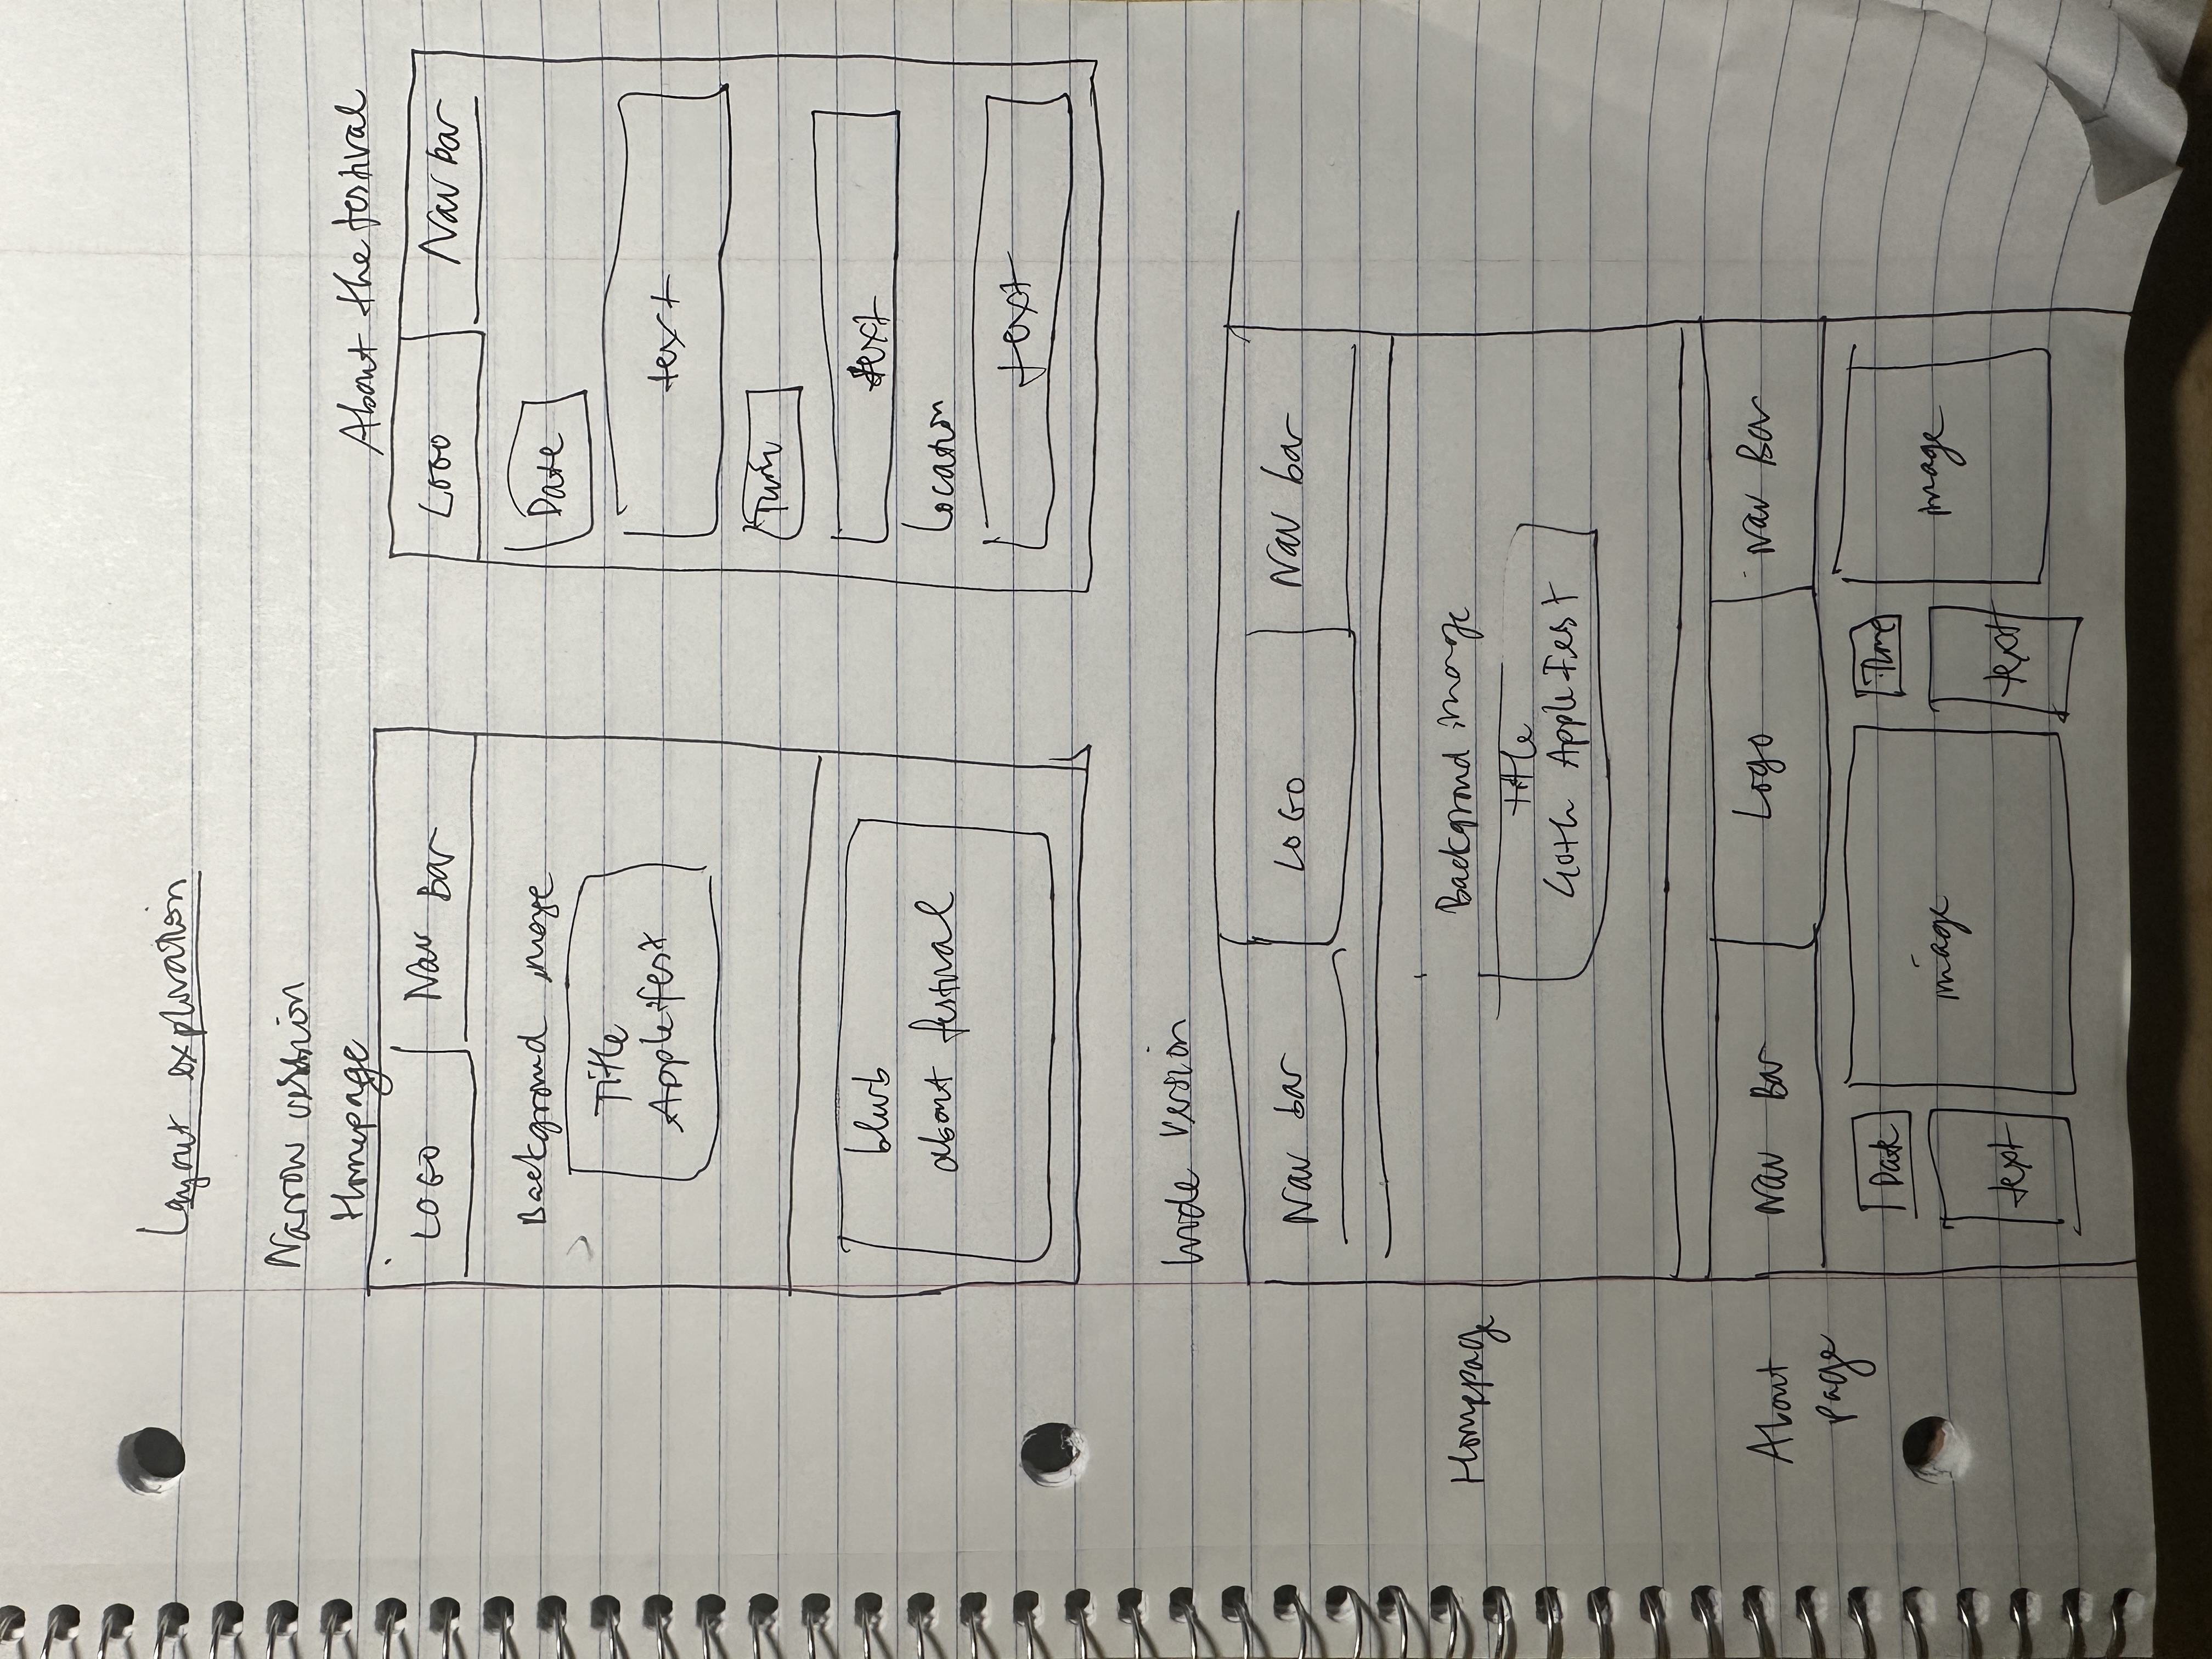 Layout exploration
Narrow version
Homepage
LOGO Nav Bar
Background image
Title
Applefest
blurb
about festival
About the festival
LOGO Nav bar
Date
text
Time
text
Location
text
Wide version
Homepage
Nav bar LOGO Nav bar
Background image
title
Goth AppleFest
About
page
Nav Bar Logo Nav Bar
Date image Time image
text text